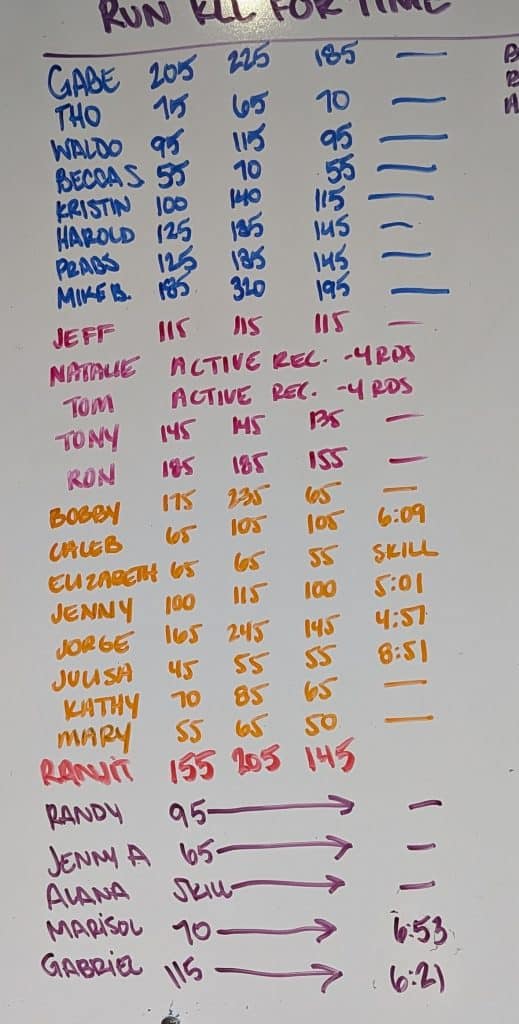 RUN KLL FOR TIME
GABE 205 225 185 —
THO 75 65 70 —
WALDO 95 115 95 —
BECCA S 55 70 55 —
KRISTIN 100 140 115 —
HAROLD 125 185 145 —
PRABS 125 185 145 —
MIKE B. 185 320 195 —
JEFF 115 115 115 —
NATALIE ACTIVE REC. -4 RDS
TOM ACTIVE REC. -4 RDS
TONY 145 145 135 —
RON 185 185 155 —
BOBBY 175 235 65 —
CALEB 65 105 105 6:09
ELIZABETH 65 65 55 SKILL
JENNY 100 115 100 5:01
JORGE 165 245 145 4:57
JULISA 45 55 55 8:51
KATHY 70 85 65 —
MARY 55 65 50 —
RANJIT 155 205 145
RANDY 95 → —
JENNY A 65 → —
ALANA SKILL → —
MARISOL 70 → 6:53
GABRIEL 115 → 6:21